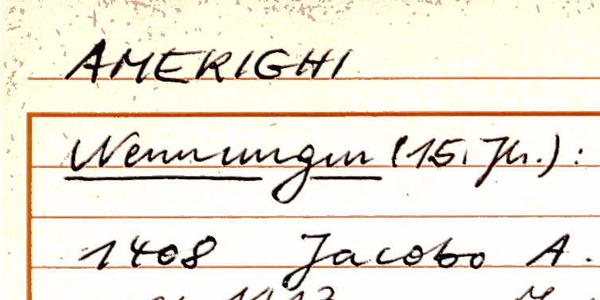 AMERIGHI
Nennungen (15. Jh.):
1408 Jacobo A.